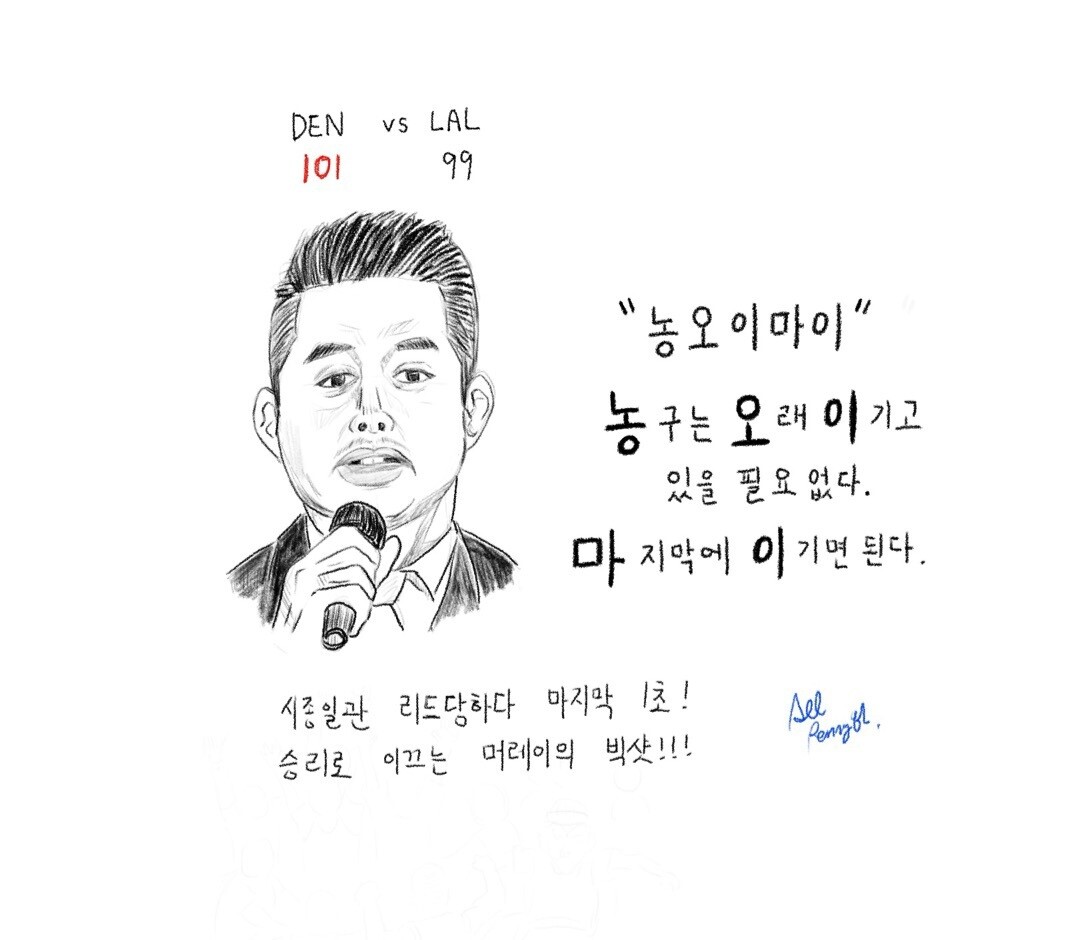 DEN vs LAL
101 99
"농오이마이"
농구는 오래 이기고
있을 필요없다.
마지막에 이기면 된다.
시종일관 리드당하다 마지막 1초!
승리로 이끄는 머레이의 빅샷!!!